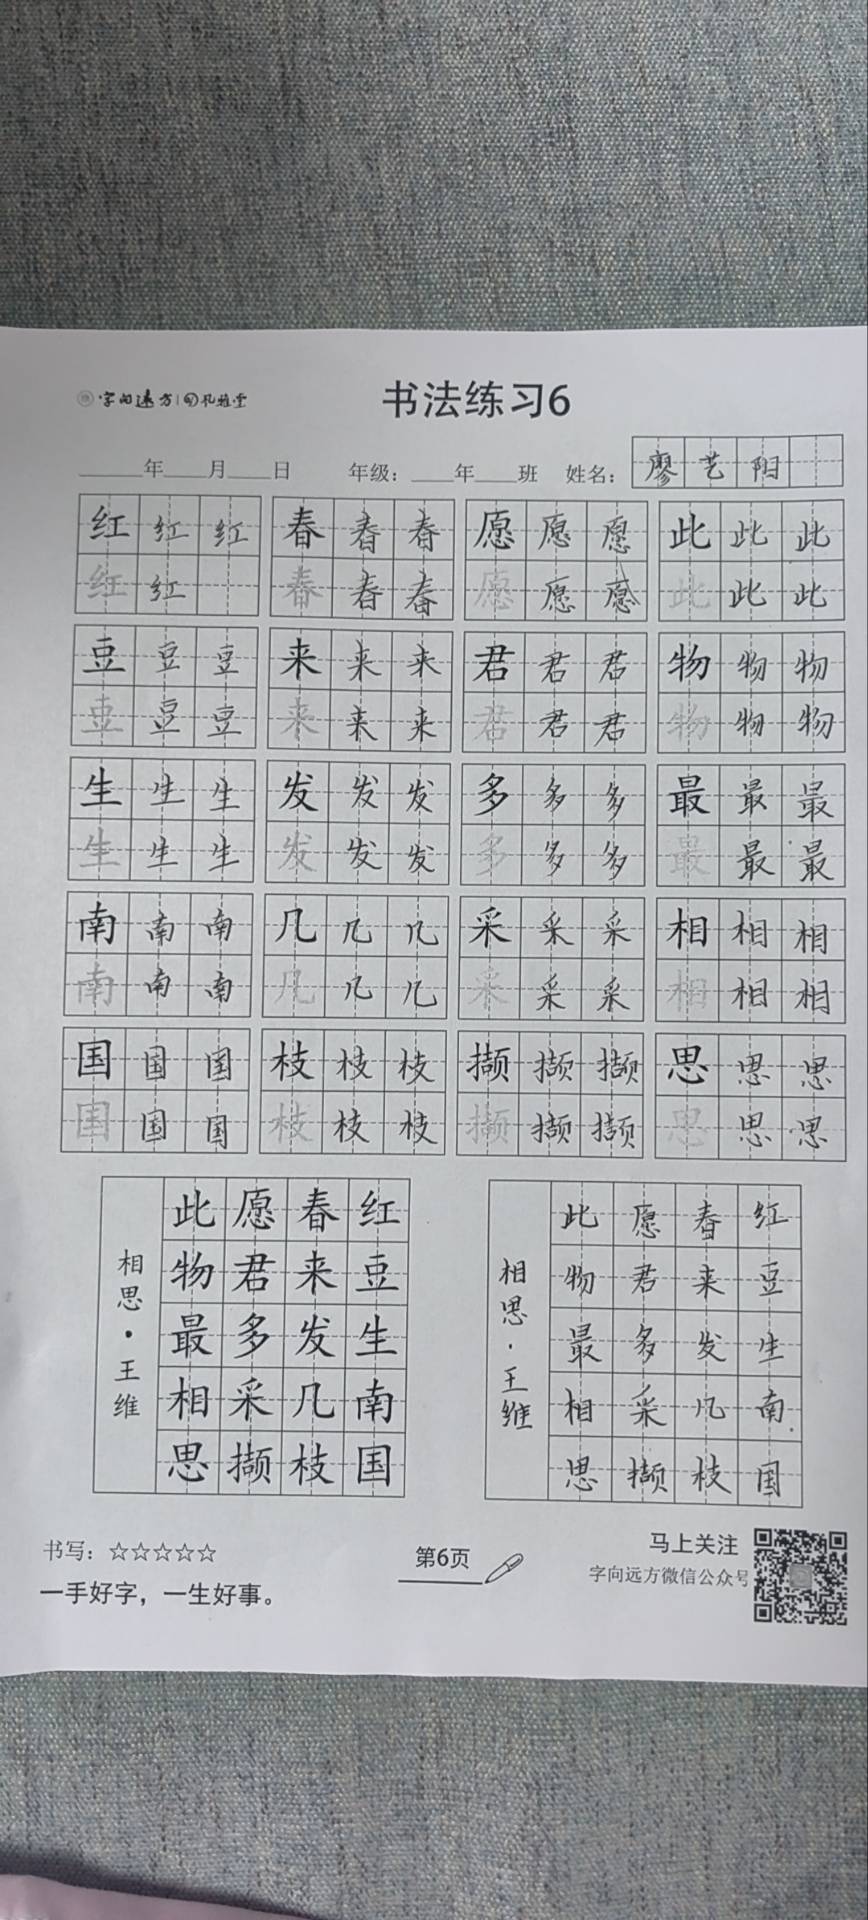 字向远方 | 孔雅堂
书法练习6
____年___月___日 年级：___年___班 姓名：廖艺阳
红红红 春春春 愿愿愿 此此此
红红 春春春 愿愿愿 此此此
豆豆豆 来来来 君君君 物物物
豆豆豆 来来来 君君君 物物物
生生生 发发发 多多多 最最最
生生生 发发发 多多多 最最最
南南南 几几几 采采采 相相相
南南南 几几几 采采采 相相相
国国国 枝枝枝 撷撷撷 思思思
国国国 枝枝枝 撷撷撷 思思思
红豆生南国
春来发几枝
愿君多采撷
此物最相思
相思·王维
红豆生南国
春来发几枝
愿君多采撷
此物最相思
相思·王维
书写：☆☆☆☆☆
一手好字，一生好事。
第6页
马上关注
字向远方微信公众号